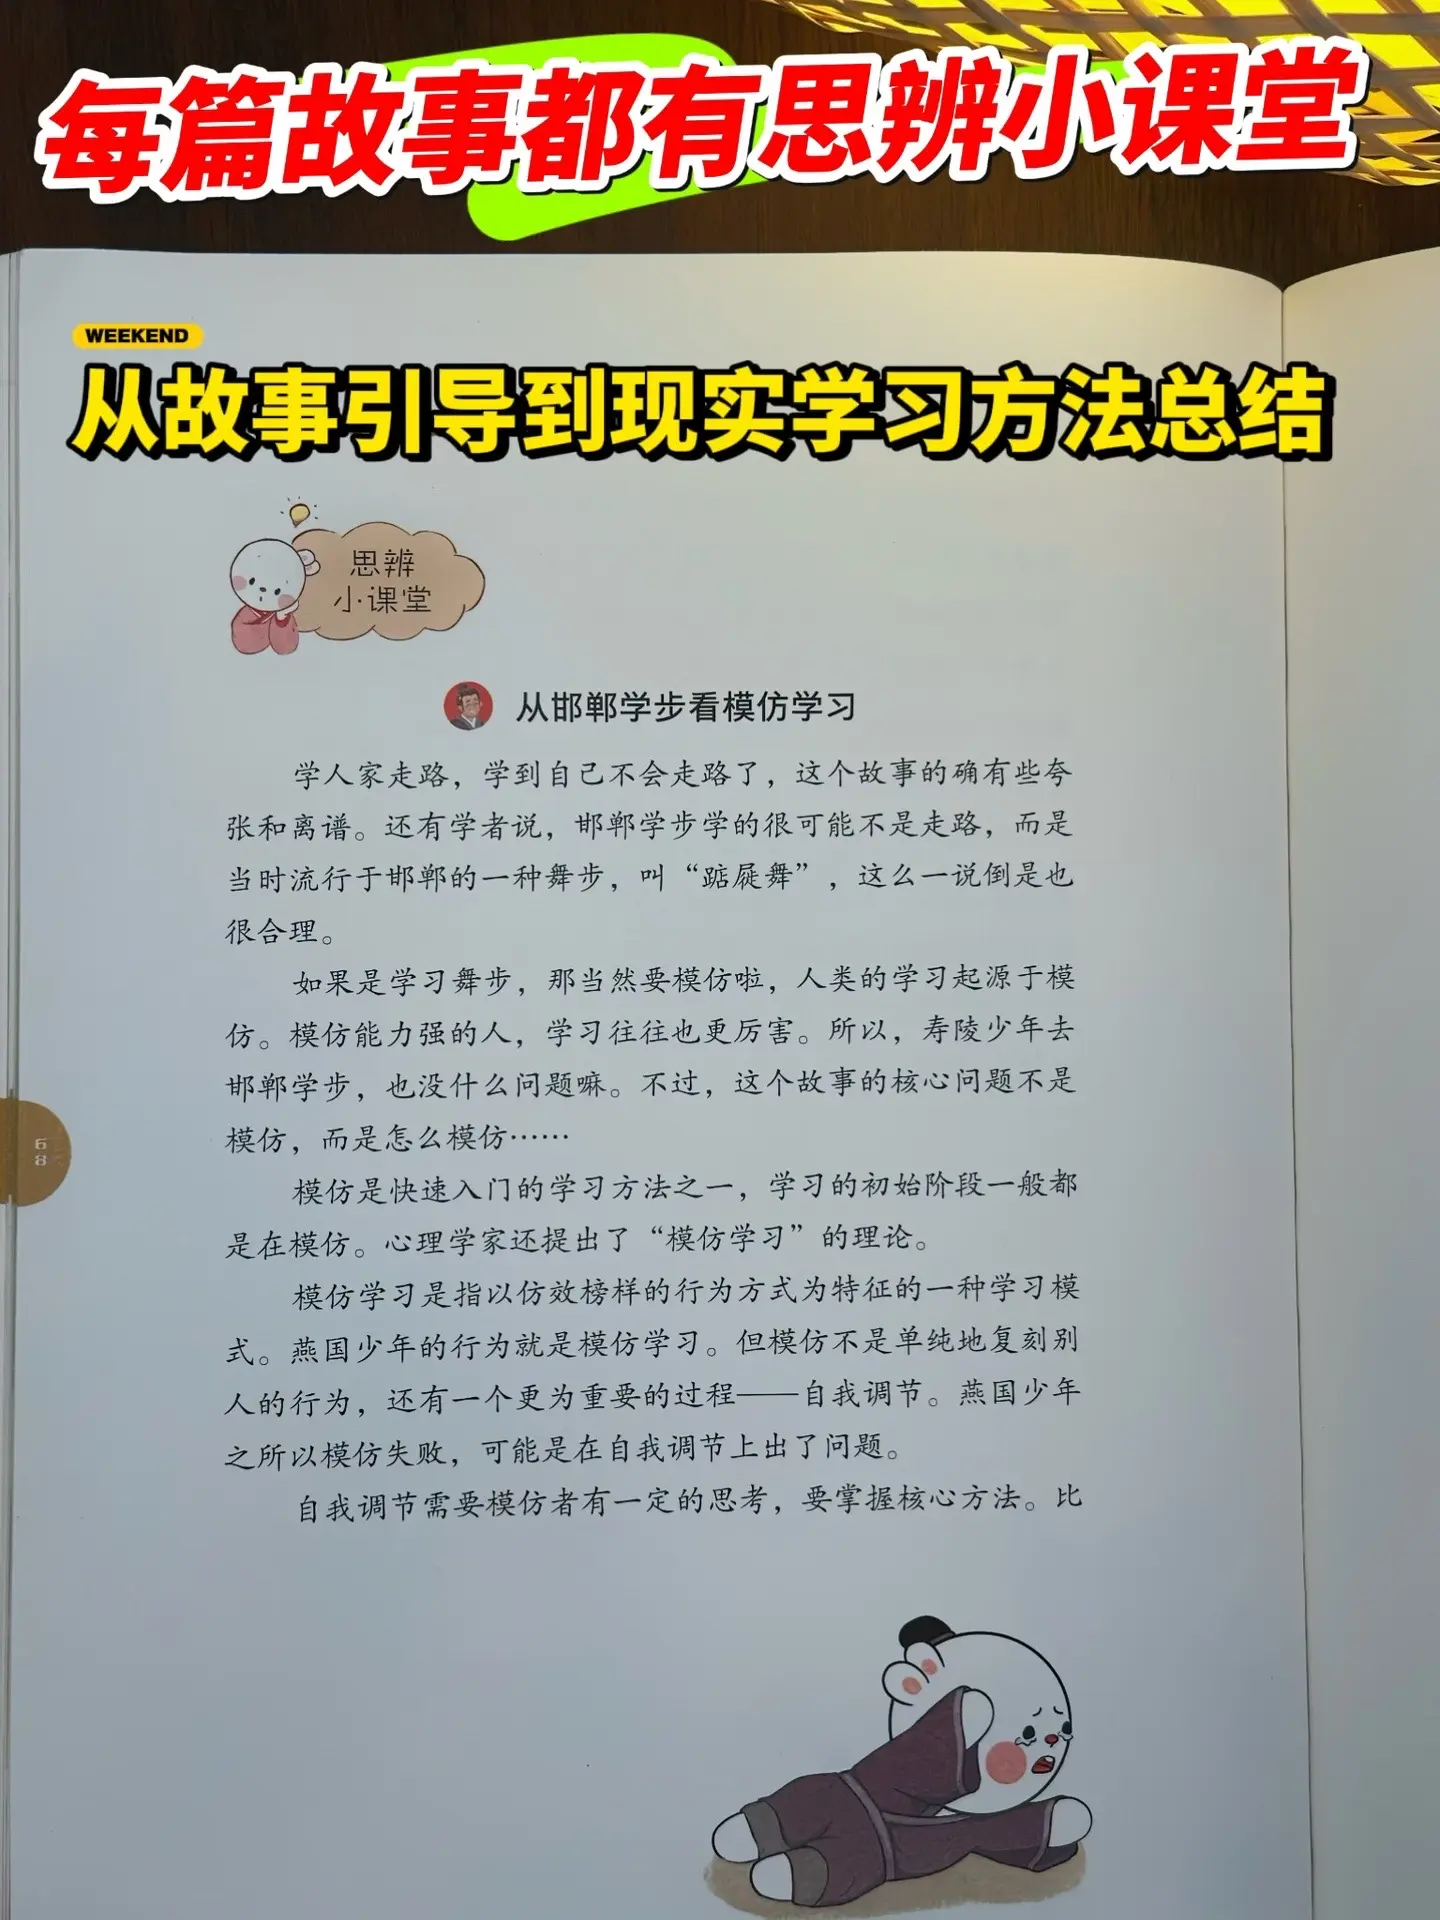 每篇故事都有思辨小课堂
WEEKEND
从故事引导到现实学习方法总结
思辨
小课堂
从邯郸学步看模仿学习
学人家走路，学到自己不会走路了，这个故事的确有些夸
张和离谱。还有学者说，邯郸学步学的很可能不是走路，而是
当时流行于邯郸的一种舞步，叫“踮屣舞”，这么一说倒是也
很合理。
如果是学习舞步，那当然要模仿啦，人类的学习起源于模
仿。模仿能力强的人，学习往往也更厉害。所以，寿陵少年去
邯郸学步，也没什么问题嘛。不过，这个故事的核心问题不是
模仿，而是怎么模仿……
模仿是快速入门的学习方法之一，学习的初始阶段一般都
是在模仿。心理学家还提出了“模仿学习”的理论。
模仿学习是指以仿效榜样的行为方式为特征的一种学习模
式。燕国少年的行为就是模仿学习。但模仿不是单纯地复刻别
人的行为，还有一个更为重要的过程——自我调节。燕国少年
之所以模仿失败，可能是在自我调节上出了问题。
自我调节需要模仿者有一定的思考，要掌握核心方法。比
68